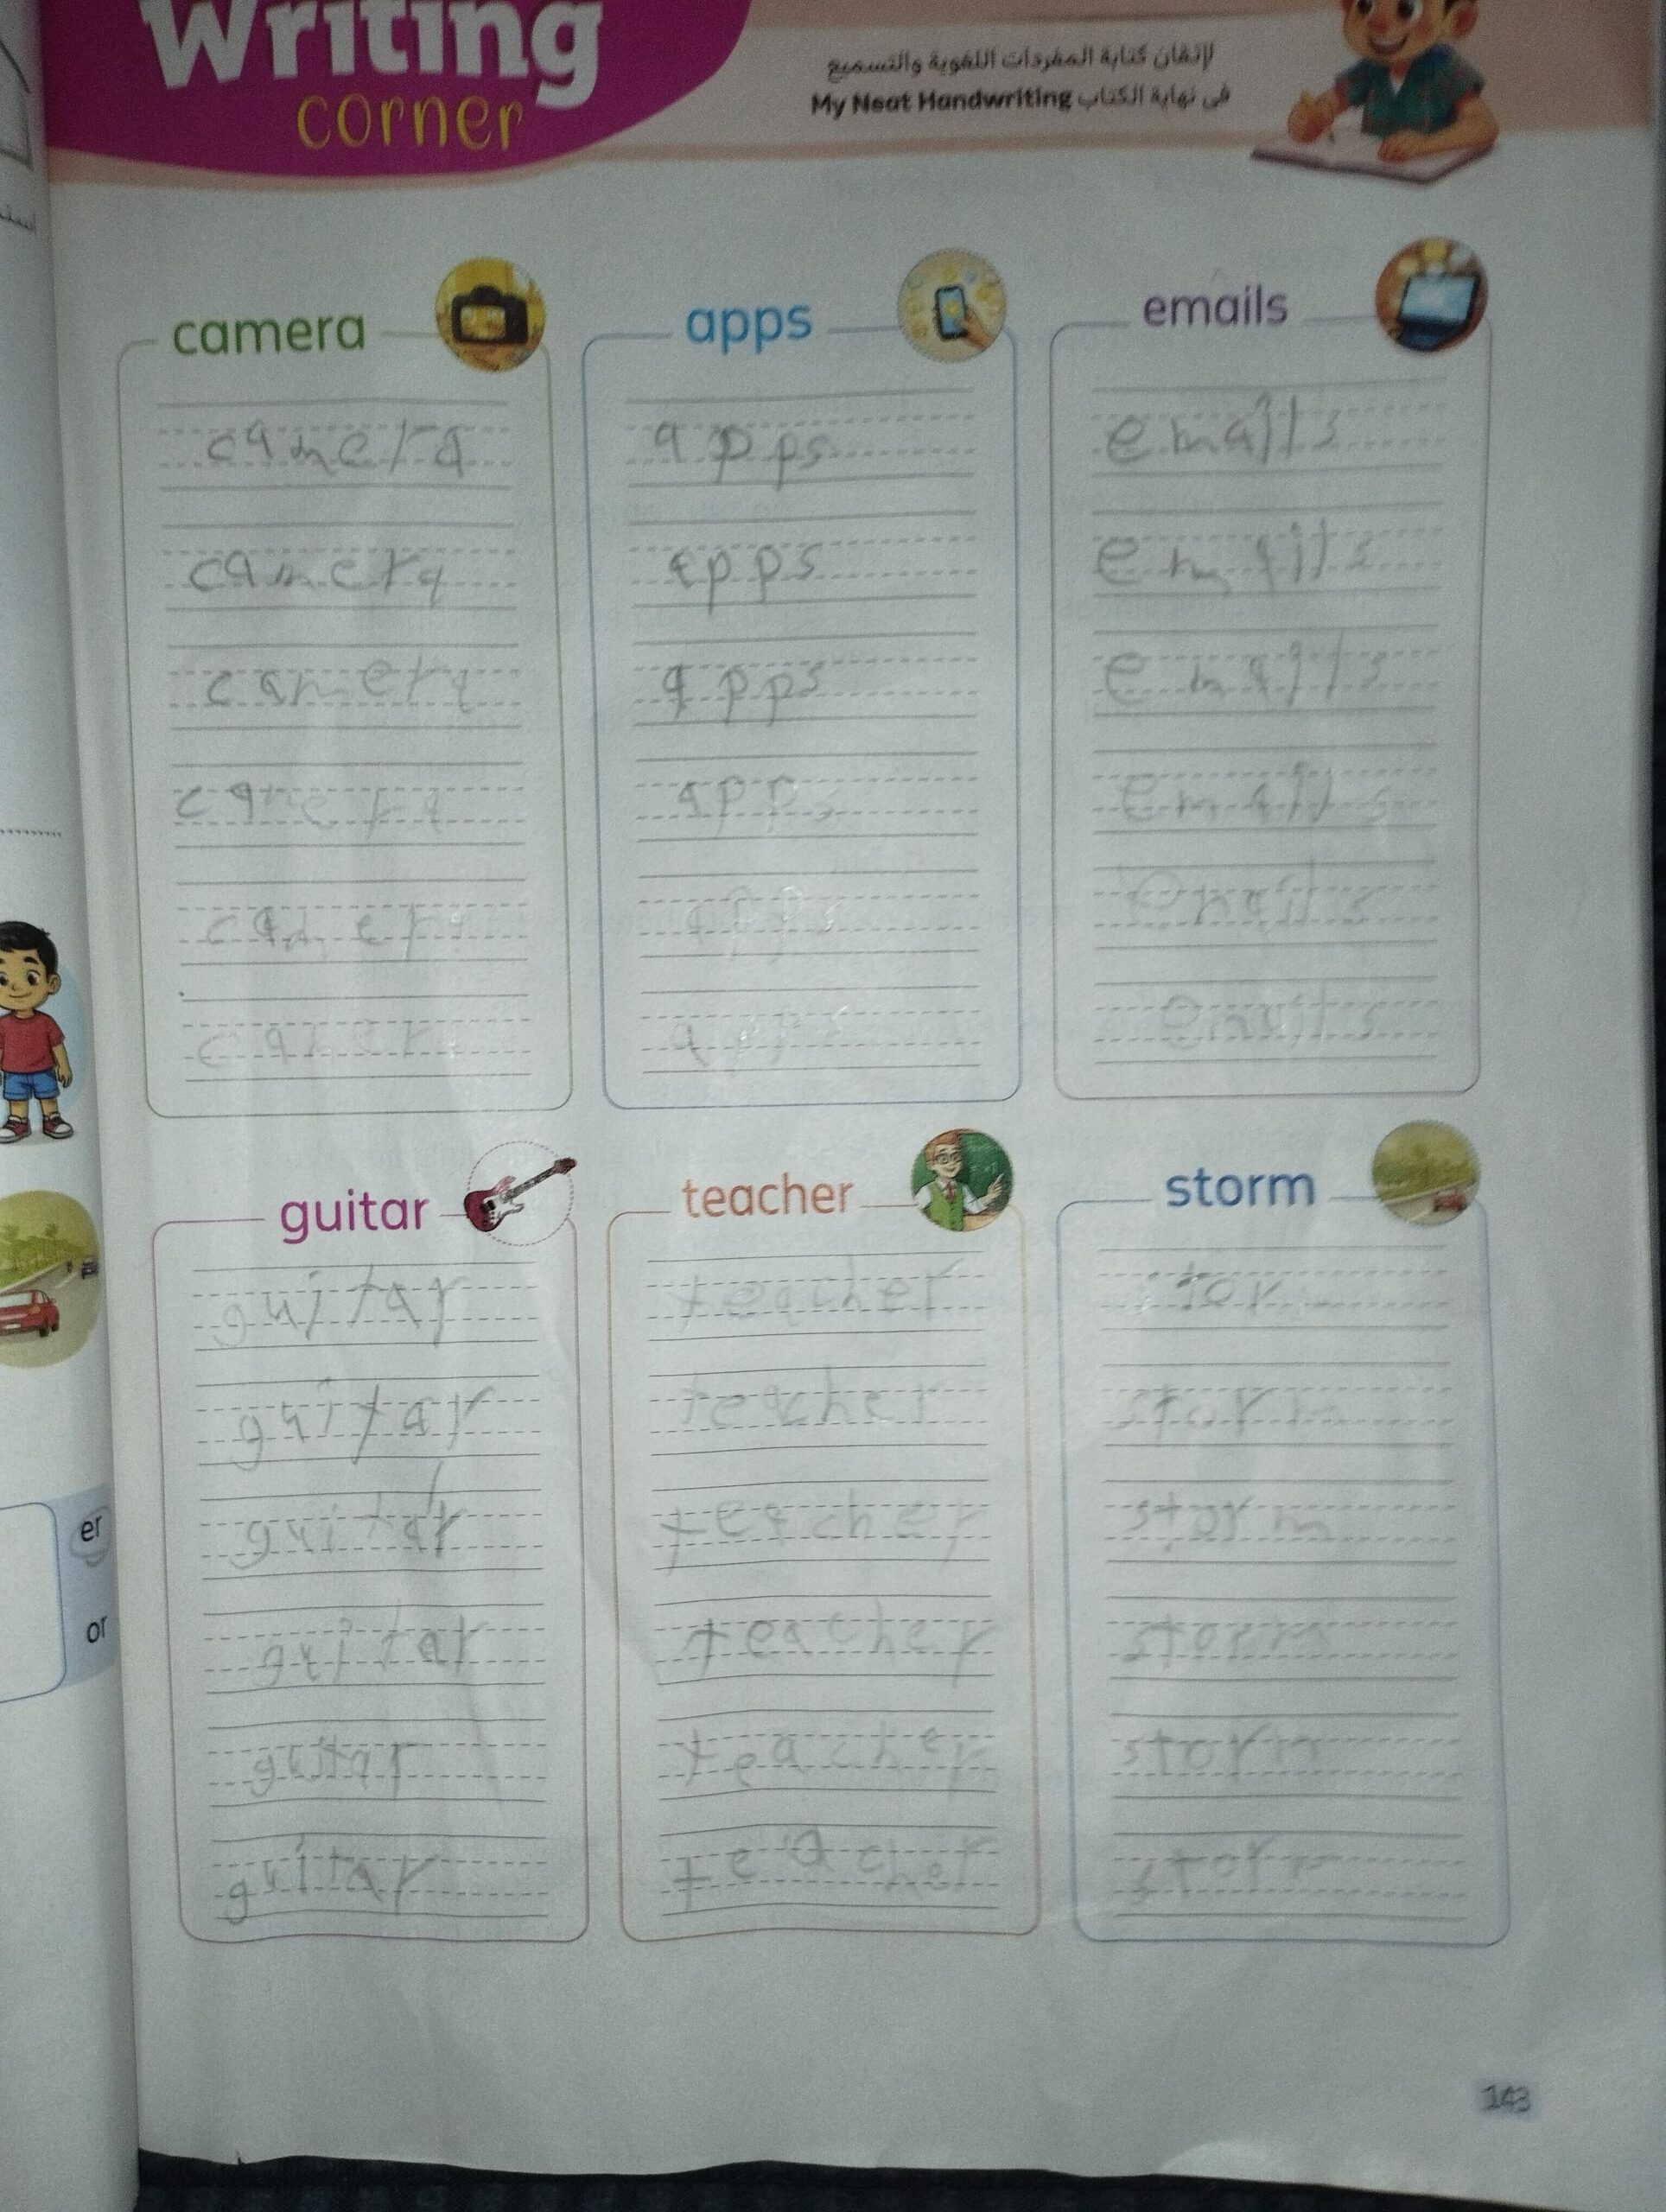 Writing
corner
لإتقان كتابة المفردات اللغوية والتسميع
فى نهاية الكتاب My Neat Handwriting
camera
apps
emails
camera
apps
emails
camera
apps
emails
camera
apps
emails
camera
apps
emails
camera
apps
emails
apps
emails
guitar
teacher
storm
guitar
teacher
guitar
teacher
storm
guitar
teacher
storm
guitar
teacher
storm
guitar
teacher
storm
guitar
teacher
storm
er
or
143